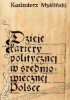 Kazimierz Myśliński
Dzieje
kariery
politycznej
w średnio-
wiecznej
Polsce